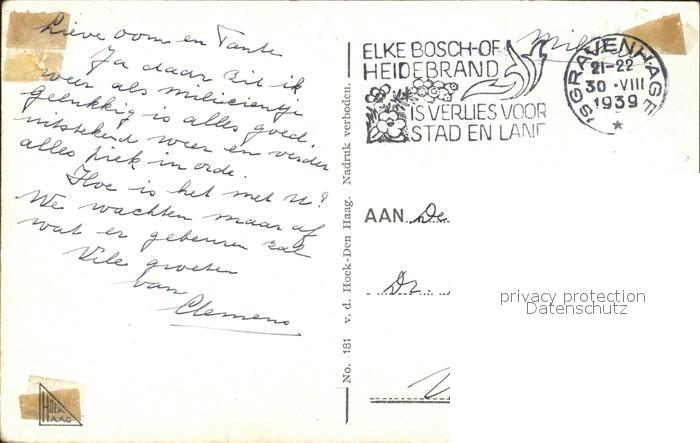 Lieve oom en Tante
Ja daar zit ik
weer als miliciентje
Gelukkig is alles goed,
uitstekend weer en verder
alles piek in orde.
Hoe is het met U?
We wachten maar af
wat er gebeuren zal
Vele groeten
van
Clemens
No. 181 v. d. Hoek-Den Haag. Nadruk verboden.
HOEK
HAAG
ELKE BOSCH-OF
HEIDEBRAND
IS VERLIES VOOR
STAD EN LAND
'SGRAVENHAGE
21-22
30 ·VIII
1939
AAN De
Dr.
privacy protection
Datenschutz